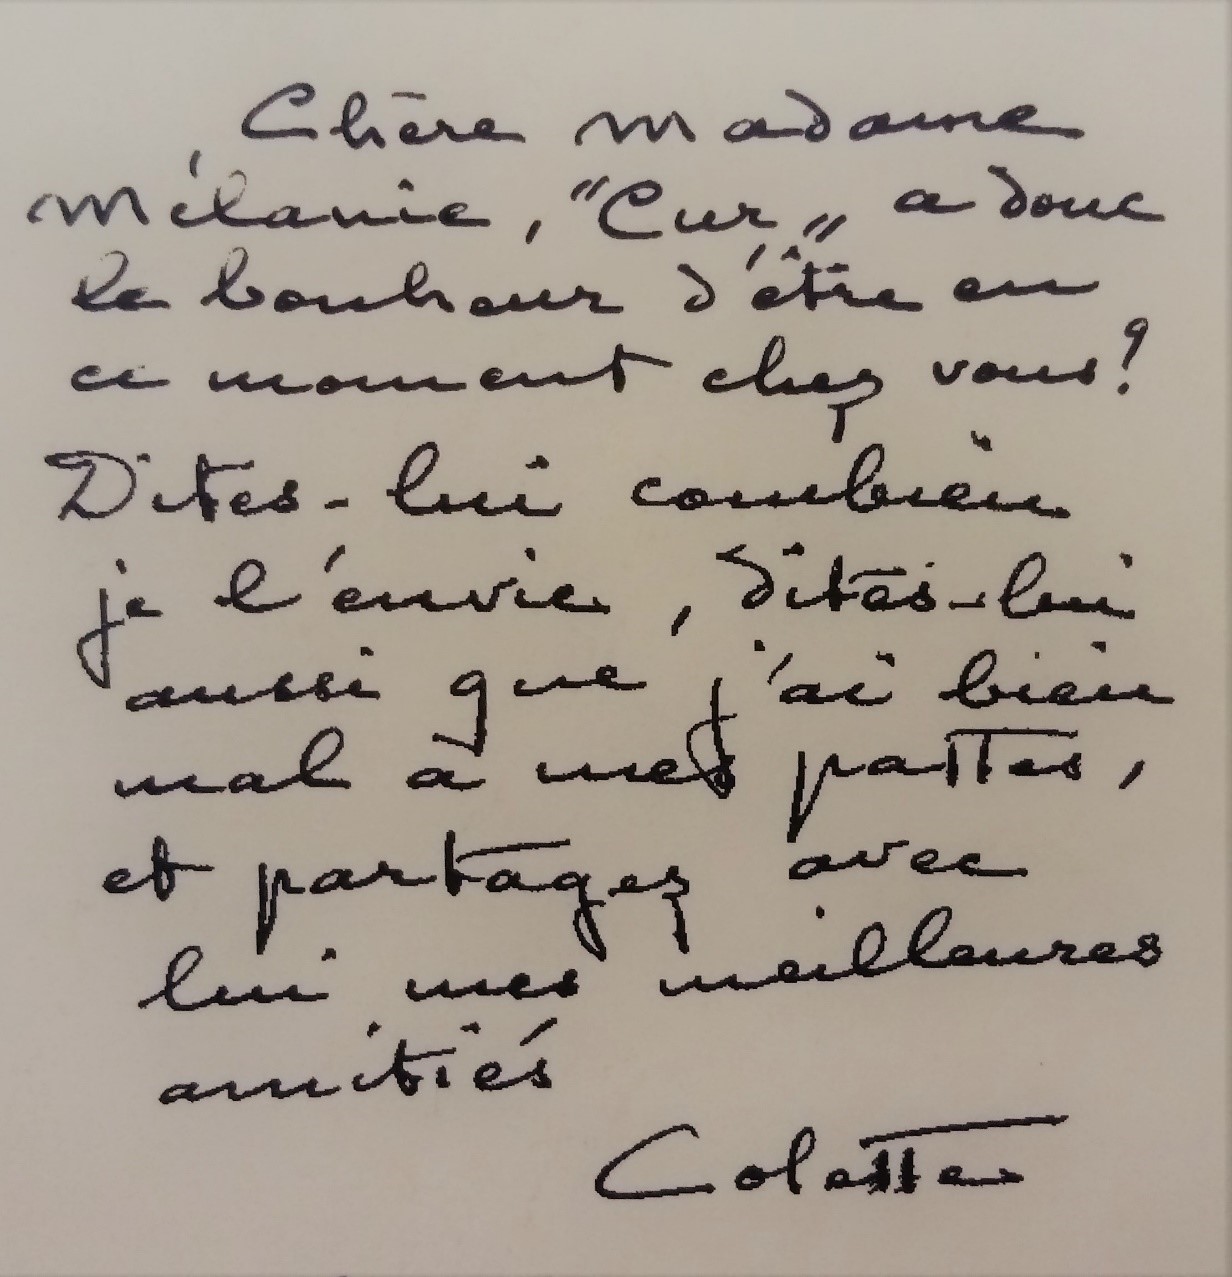 Chère Madame
Mélanie, "Cur" a donc
le bonheur d'être en
ce moment chez vous?
Dites-lui combien
je l'envie, dites-lui
aussi que j'ai bien
mal à mes pattes,
et partagez avec
lui mes meilleures
amitiés
Colette